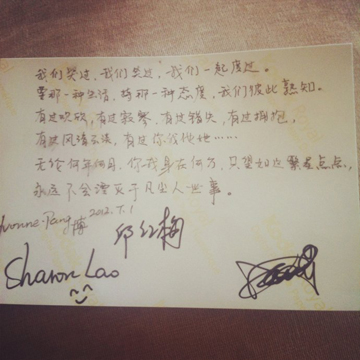 我们哭过,我们笑过,我们一起度过。
某那一种生活,持那一种态度,我们彼此熟知。
有过欢欣,有过寂寥,有过错失,有过拥抱,
有过风情,有过你我他她……
无论何年何月,你我身在何方,只望如这繁星点点,
永远不会湮灭于凡尘人世事。
Yvonne.Pang 2012.7.1
邱红梅
Sharon Lao